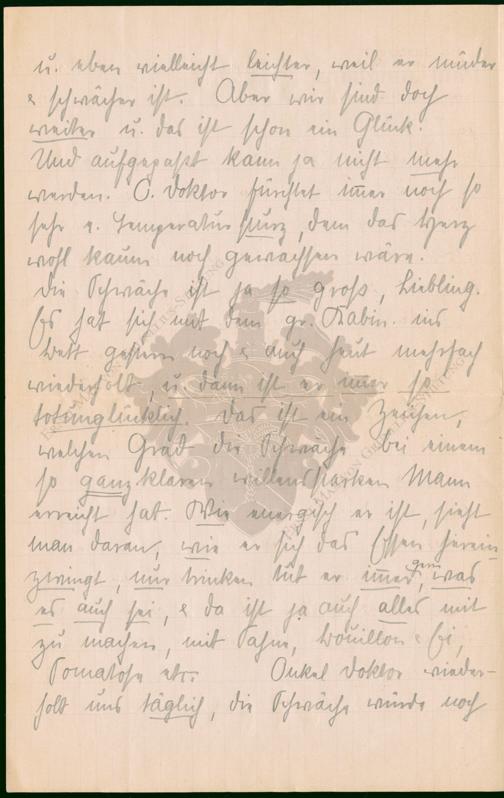 u. eben vielleicht leichter, weil er müder
& schwächer ist. Aber wir sind doch
weiter u. das ist schon ein Glück.
Und aufgepaßt kann ja nicht mehr
werden. O. Doktor fürchtet immer noch so
sehr e. Temperatursturz, dem das Herz
wohl kaum noch gewachsen wäre.
Die Schwäche ist ja so groß, Liebling.
Es hat sich mit dem gr. Kabin. ins
Bett gestern noch & auch heut mehrfach
wiederholt, u. dann ist er immer so
totunglücklich. Das ist ein Zeichen,
welchen Grad die Schwäche bei einem
so ganz klaren willensstarken Mann
erreicht hat. Wie energisch er ist, sieht
man daran, wie er sich das Essen herein-
zwingt, nur trinken tut er immer gern, was
es auch sei, & da ist ja auch alles mit
zu machen, mit Sahne, Bouillon & Ei,
Tomatose etc. Onkel Doktor wieder-
holt uns täglich, die Schwäche würde noch